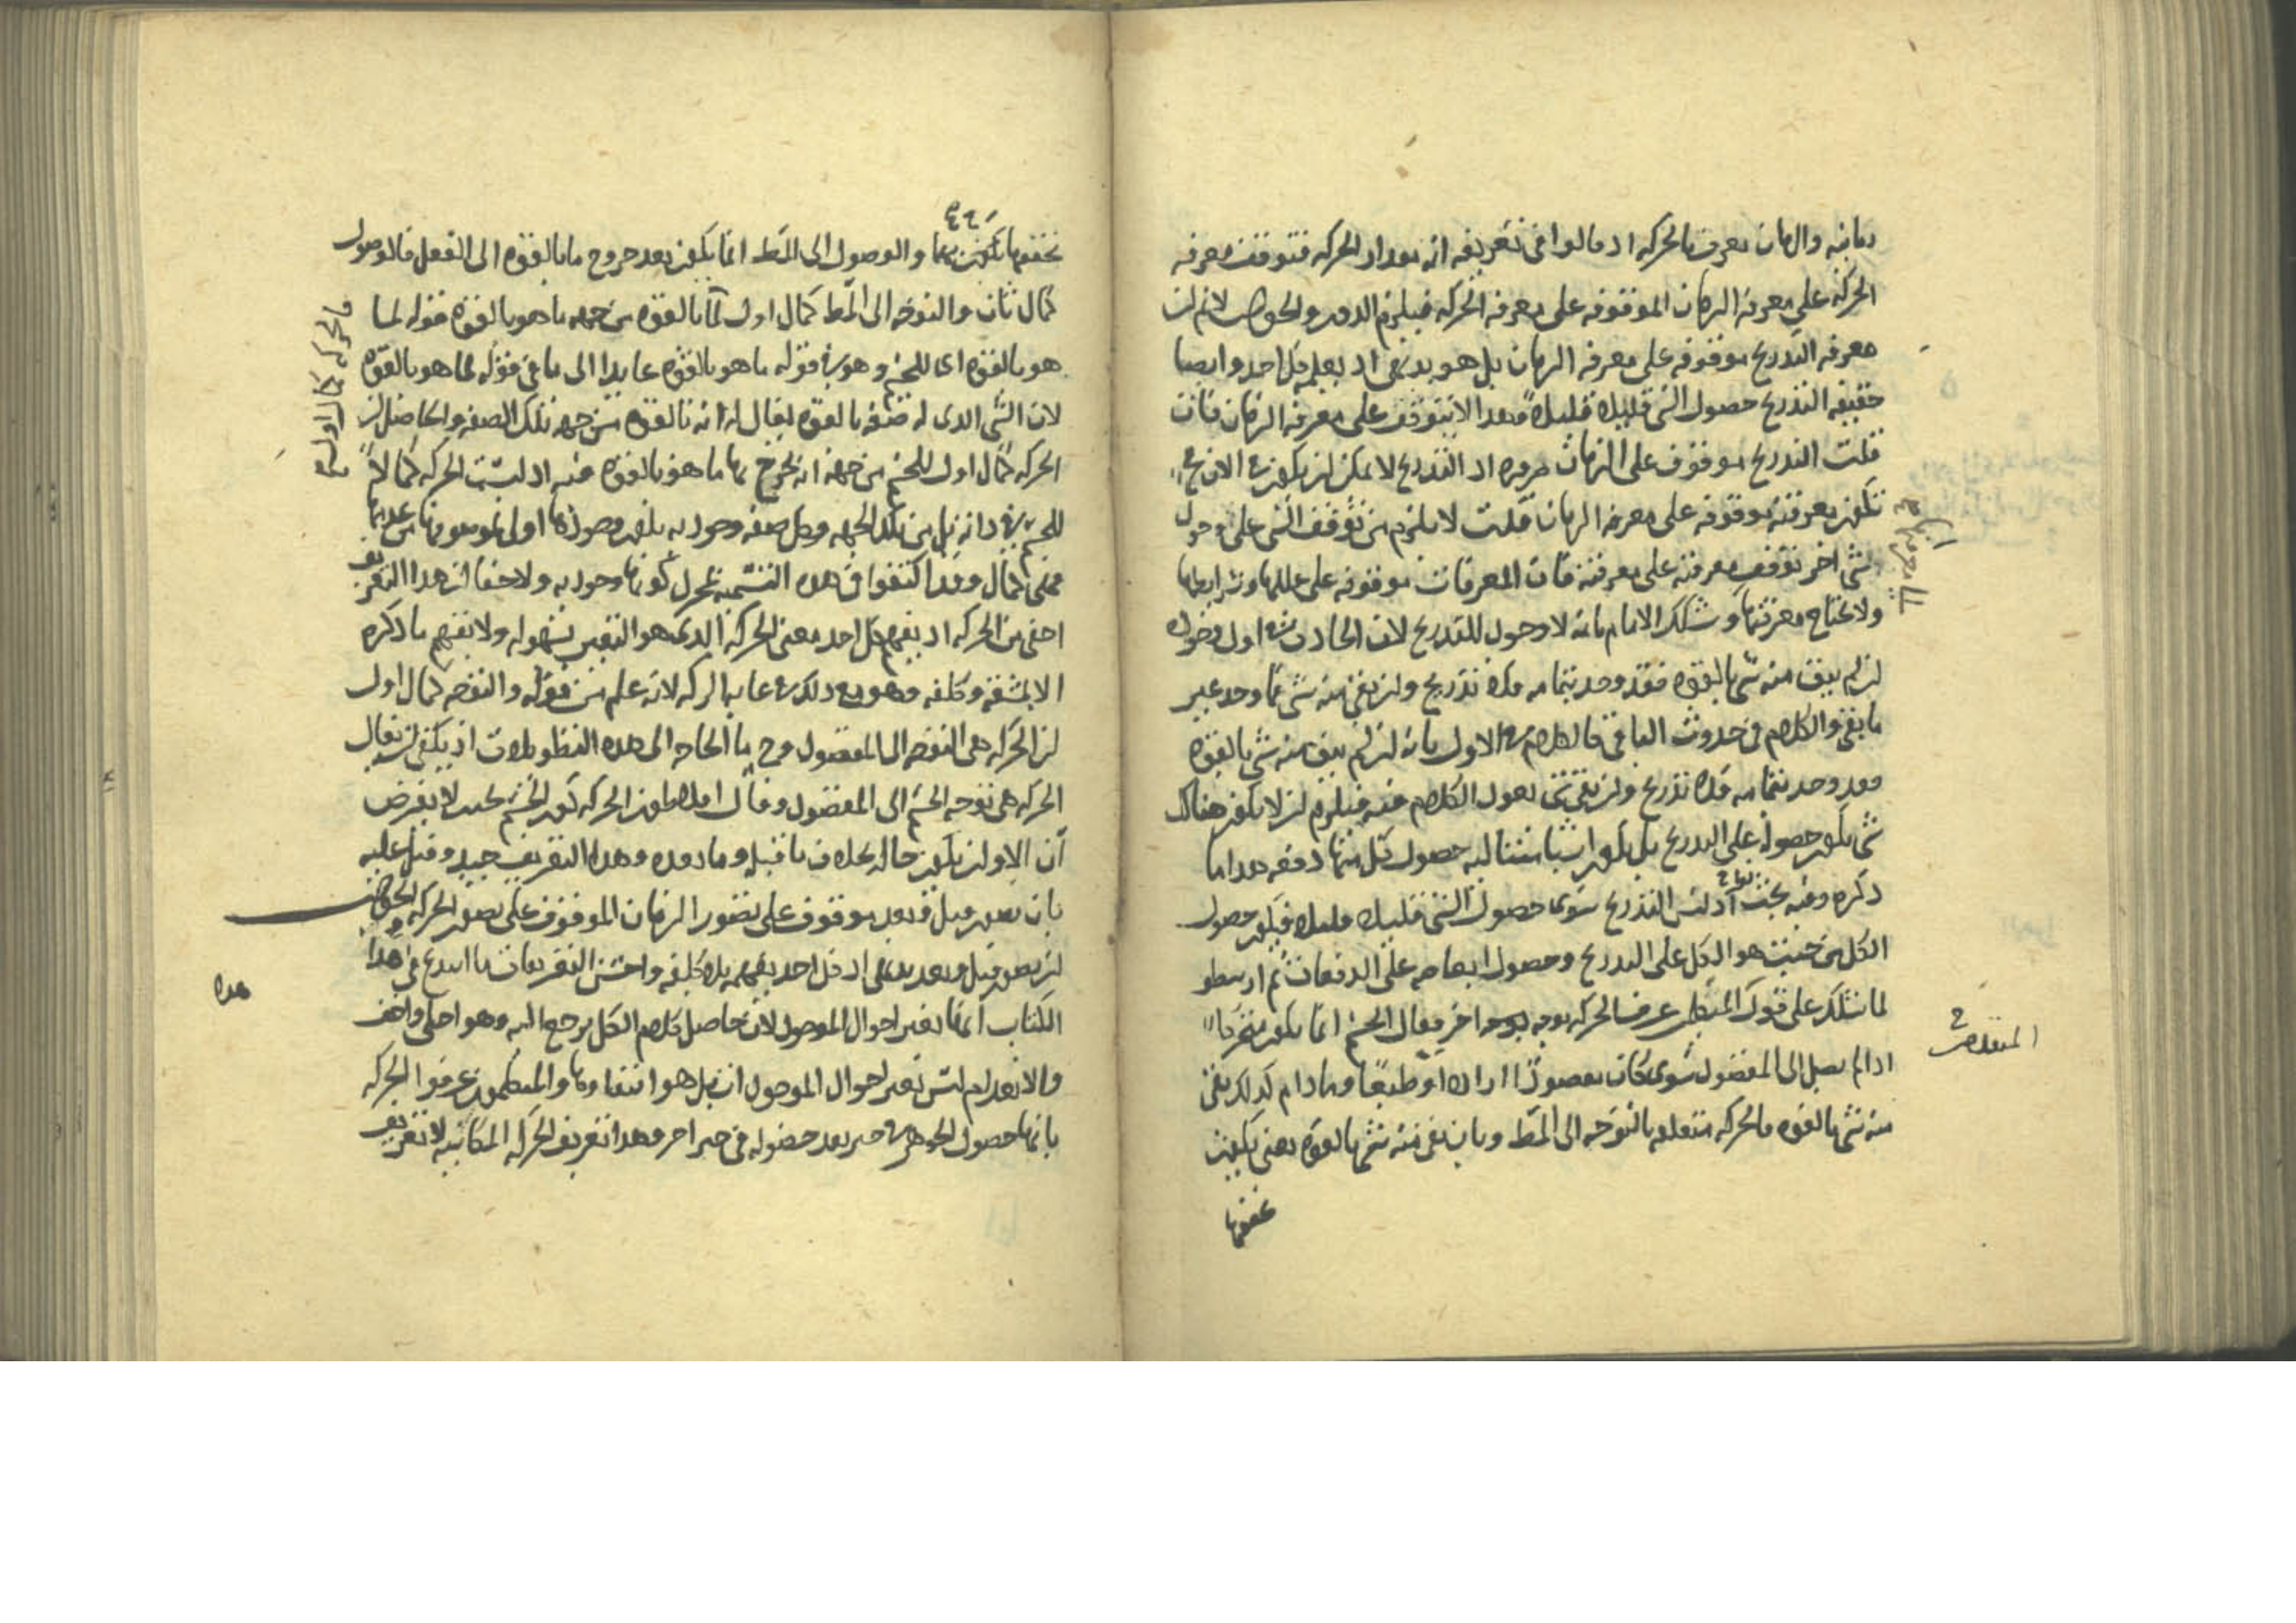 زمانية والزمان يعرف بالحركة اذ قالوا في تعريفه انه مقدار الحركة فتتوقف معرفة
الحركة على معرفة الزمان الموقوفة على معرفة الحركة فيلزم الدور والجواب لا نم ان
معرفة التدريج موقوفة على معرفة الزمان بل هو بديهي اذ يعلمه كل احد وايضا
حقيقة التدريج حصول الشي قليلا قليلا وهذا لا يتوقف على معرفة الزمان فان
قلت التدريج موقوف على الزمان ضرورة اذ التدريج لا يمكن ان يكون في الان فح
تكون معرفته موقوفة على معرفة الزمان قلت لا يلزم من توقف الشي على وجود
شي اخر توقف معرفته على معرفته فان المعرفات موقوفة على عللها وشرايطها
ولا يحتاج معرفتها وشكك الامام بانه لا وجود للتدريج لان الحادث في اول وجوده
ان لم يبق منه شي بالقوة فقد وجد بتمامه فلا تدريج وان بقي منه شي فما وجد غير
ما بقي والكلام في حدوث الباقي كالكلام في الاول بانه ان لم يبق منه شي بالقوة
فقد وجد بتمامه فلا تدريج وان بقي شي يعود الكلام فيه فيلزم ان لا يكون هناك
شي يكون حصوله على التدريج بل يكون اشيا متتالية حصول كل منها دفعة هذا ما
ذكره وفيه بحث اذ ليس التدريج سوى حصول الشي قليلا قليلا فيكون حصول
الكل من حيث هو الكل على التدريج وحصول ابعاضه على الدفعات ثم ارسطو
لما شكك على قول المتقدمين عرف الحركة بوجه اخر فقال الجسم انما يكون متحركا
اذا لم يصل الى المقصود سوى كان مقصودا اراده او طبيعيا وما دام كذلك بقي
منه شي بالقوة فالحركة متعلقة بالتوجه الى المط وبان بقي منه شي بالقوة يعني يكون
تحققها
تحققها يكون بهما والوصول الى المط انما يكون بعد خروج ما بالقوة الى الفعل فالوصول
كمال ثان والتوجه الى المط كمال اول لما بالقوة من جهة ما هو بالقوة فقوله لما
هو بالقوة اى للجسم وهو في قوله ما هو بالقوة عايدا الى ما في قوله لما هو بالقوة
لان الشي الذى له صفة بالقوة يقال له انه بالقوة من جهة تلك الصفة والحاصل ان
الحركة كمال اول للجسم من جهة انه يخرج بها ما هو بالقوة فيه اذ ليست الحركة كمالا
للجسم في ذاته بل من تلك الجهة وكل صفة وجودية يكون وجودها اولى لموصوفها من عدمها
فهى كمال وقد اكتفوا في هذه التسمية بمجرد كونها وجودية ولا خفا ان هذا التعريف
اخفى من الحركة اذ يفهم كل احد معنى الحركة الذى هو التغير بسهولة ولا يفهم ما ذكره
الا بمشقة وكلفة وهو مع ذلك في غاية الركة لانه علم من قوله والتوجه كمال اول
ان الحركة هى التوجه الى المقصود وح ما الحاجة الى هذه التطويلات اذ يكفى ان يقال
الحركة هى توجه الجسم الى المقصود وقال افلاطون الحركة كون الجسم بحيث لا يفرض
آن الا وان يكون حاله بخلاف ما قبله وما بعده وهذا التعريف جيد وقيل عليه
بان تصور قبل وبعد موقوف على تصور الزمان الموقوف على تصور الحركة والجواب
ان تصور قبل وبعد بديهى اذ كل احد يفهمه بلا كلفة واحسن التعريفات ما ابدع في هذا
الكتاب انها تغير احوال الموجود لان حاصل كلام الكل يرجع اليه وهو اجلى واخف
والانعدام ليس تغير احوال الموجود ان بل هو انتفاوها والمتكلمون عرفوا الحركة
بانها حصول الجوهر في حيز بعد حصوله في حيز اخر وهذا تعريف الحركة المكانية لا تعريف
فالحركة كمال اول
المتقدمين
هذه